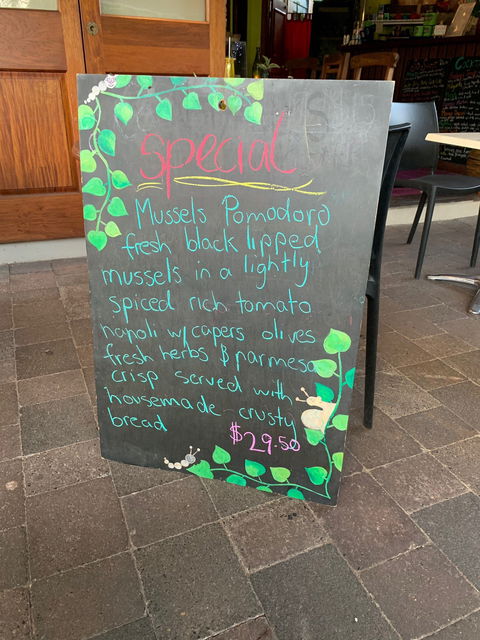 special
Mussels Pomodoro
fresh black lipped
mussels in a lightly
spiced rich tomato
napoli w/ capers olives
fresh herbs & parmesan
crisp served with
housemade crusty
bread
$29.50